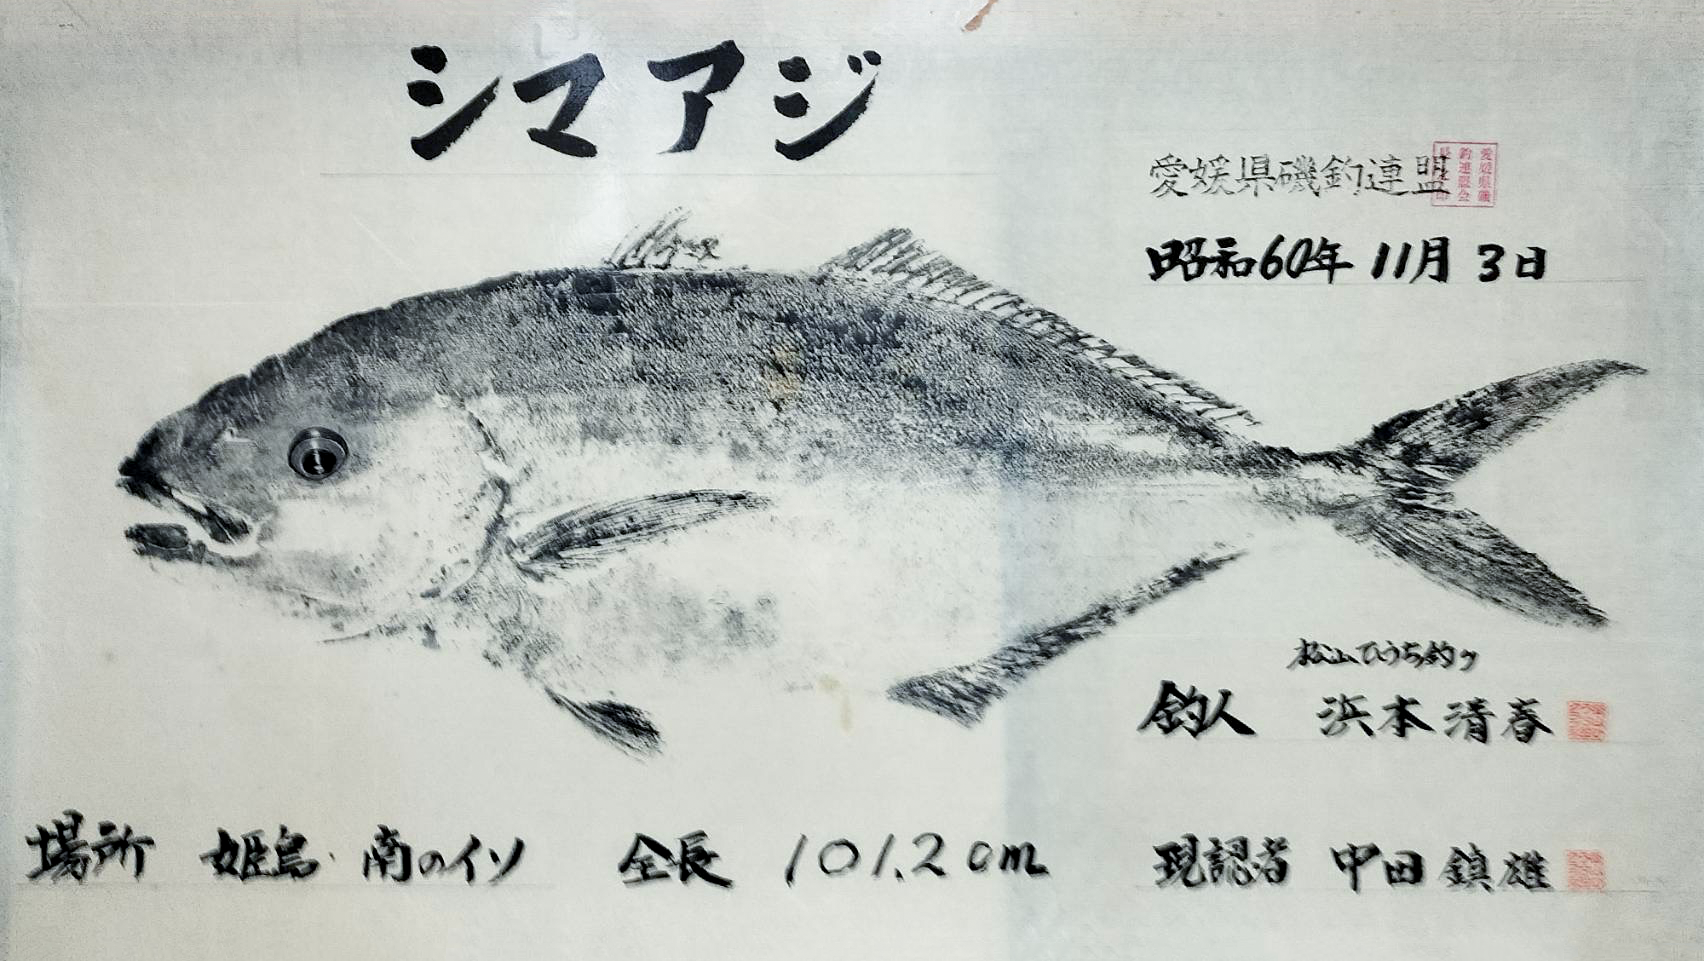 シマアジ
愛媛県磯釣連盟
昭和60年 11月 3日
松山ひうち釣ク
釣人 浜本清春
場所 姫島 南のイソ 全長 101.2cm
現認者 中田鎮雄